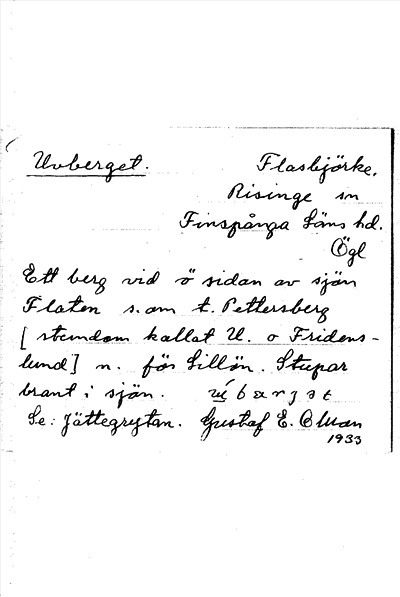 Uvberget. Flasbjörke.
Risinge sn
Finspånga Läns hd.
Ögl
Ett berg vid ö sidan av sjön
Flaten s. om t. Pettersberg
[stundom kallat U. o Fridens-
lund] n. för Lillön. Stupar
brant i sjön.
Se: Jättegrytan. Gustaf E. Olsson
1933